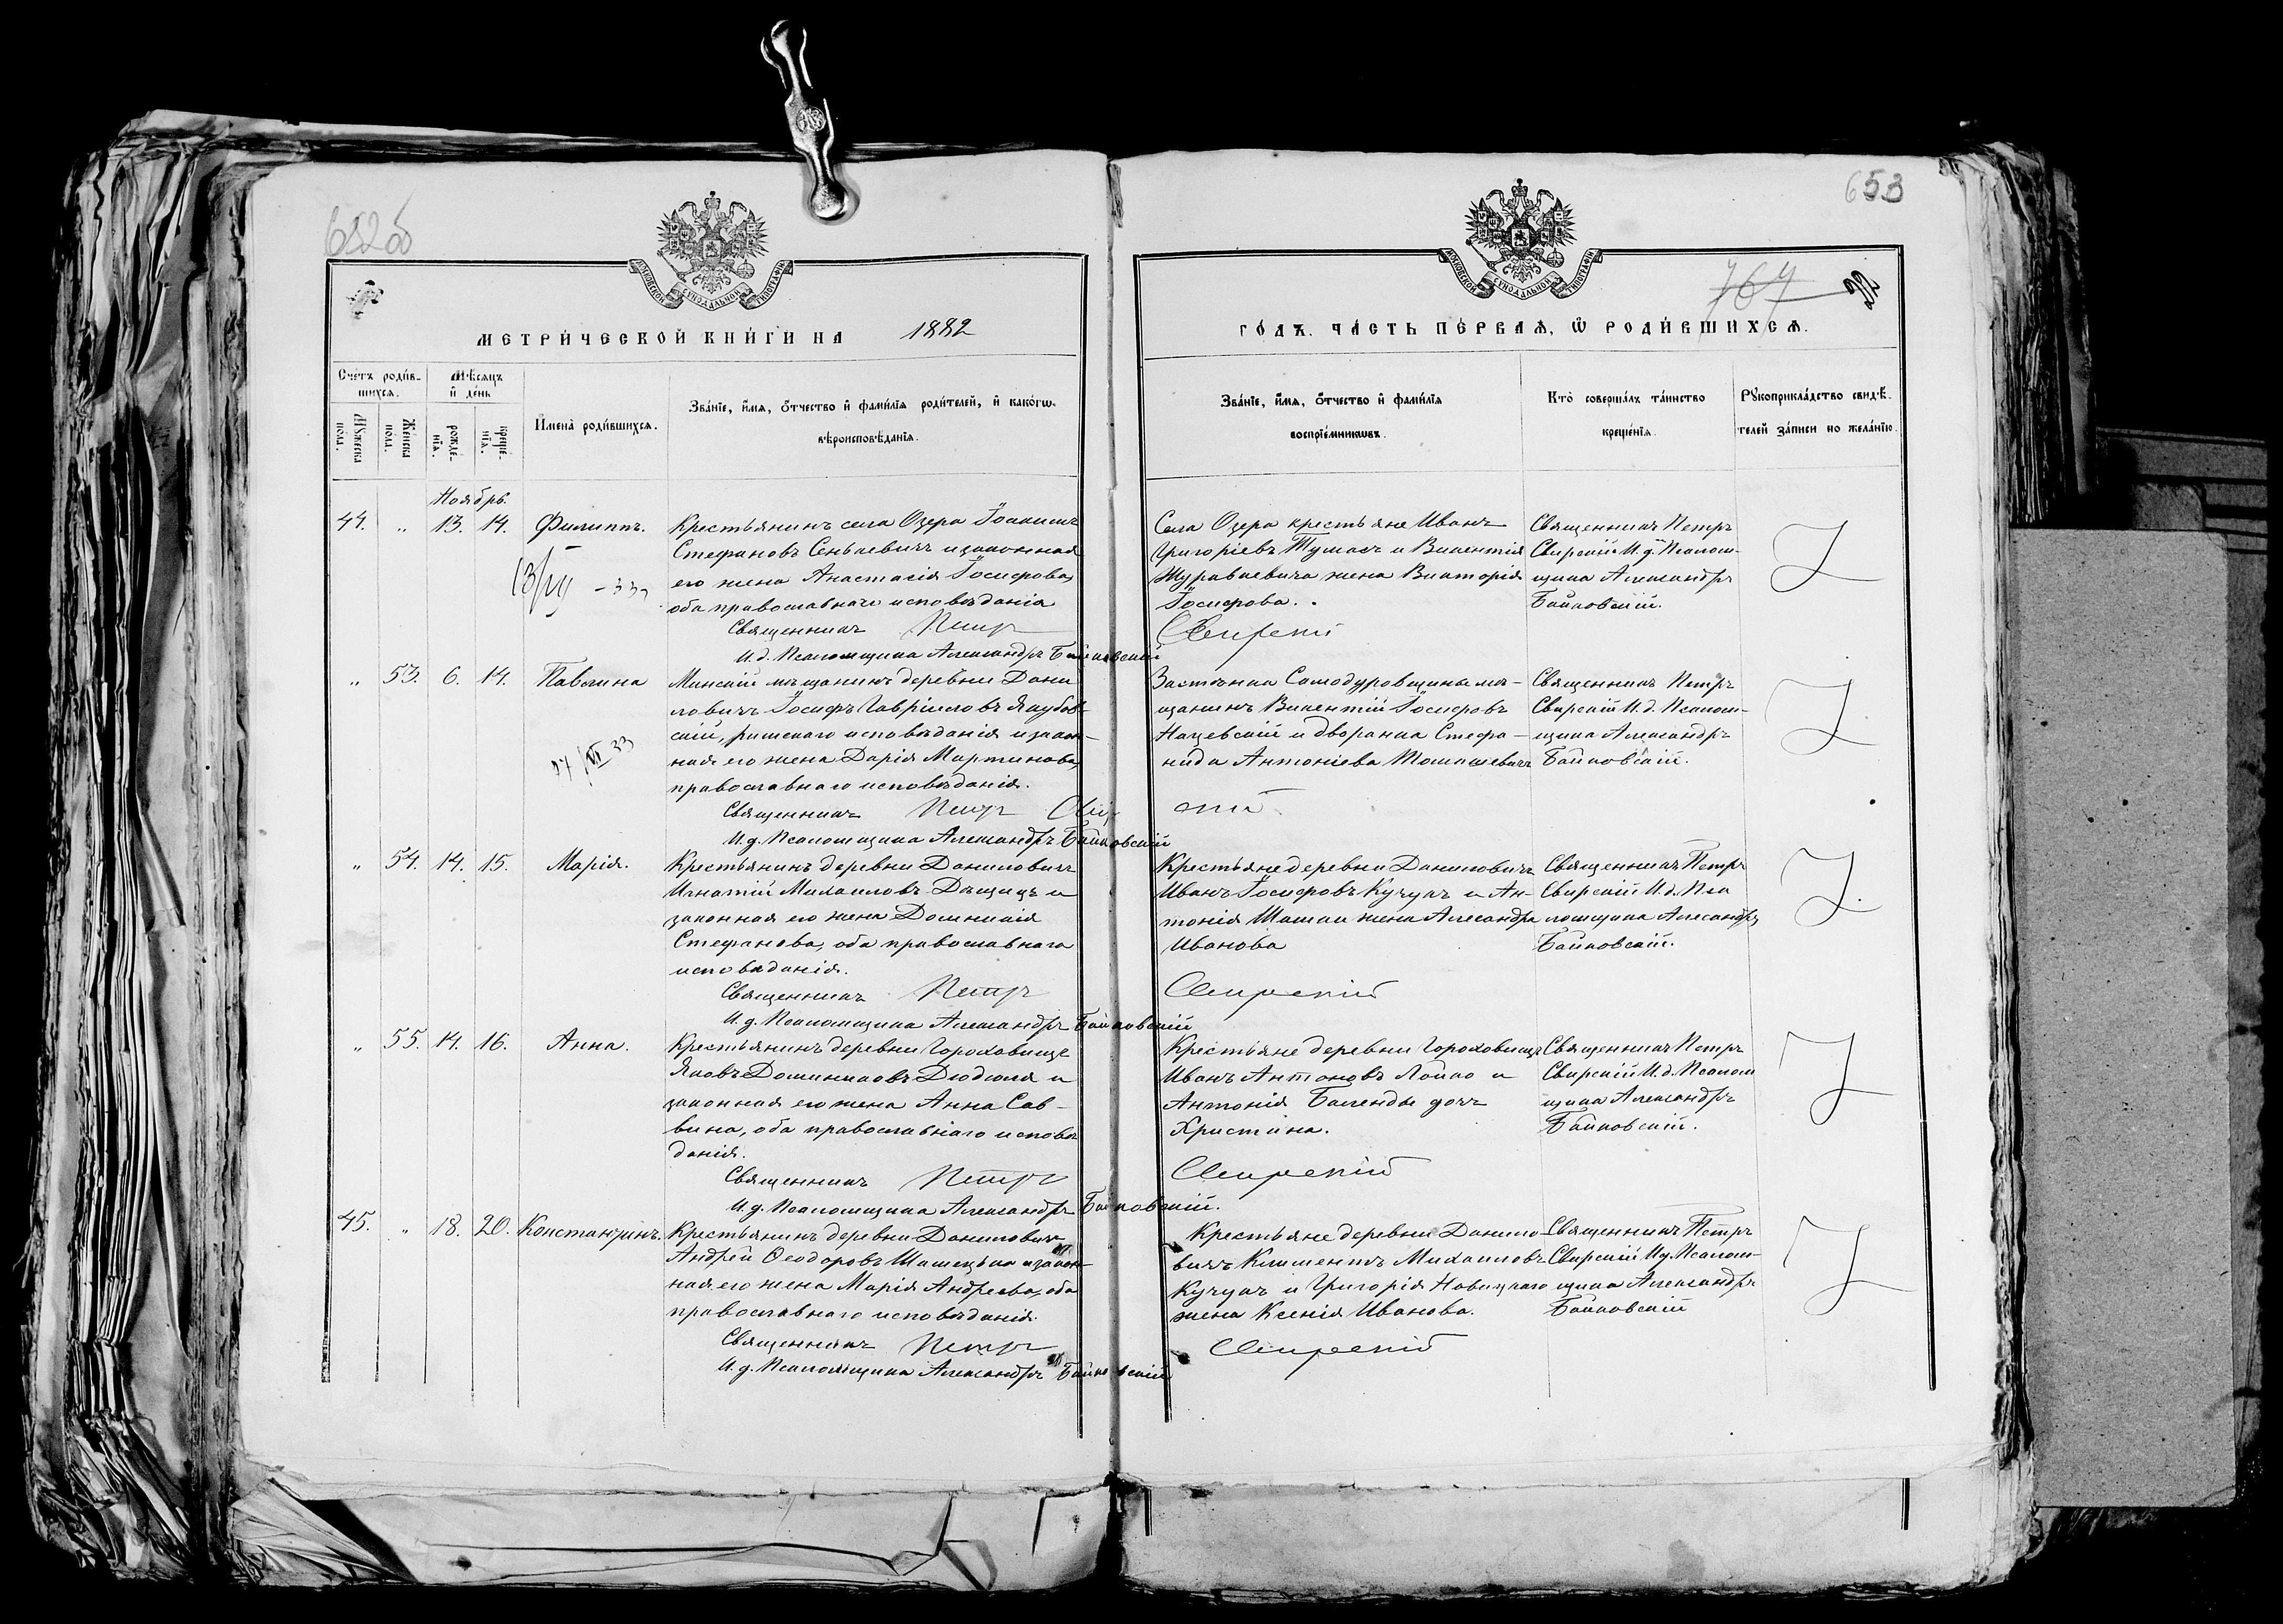 652об
653
767
МОСКОВСКОЙ СѴНОДАЛЬНОЙ ТИПОГРАФІИ
МОСКОВСКОЙ СѴНОДАЛЬНОЙ ТИПОГРАФІИ
МЕТРИ́ЧЕСКОЙ КНИ́ГИ НА 1882
ГО́ДЪ. ЧА́СТЬ ПЕ́РВАѦ, Ѽ РОДИ́ВШИХСѦ.
Сче́тъ роди́в-
шихсѧ.
Мѣ́сѧцъ
и҆ де́нь
Мꙋжеска
по́ла.
Же́нска
по́ла.
рожде́-
нїѧ.
креще́-
нїѧ.
И҆мена̀ роди́вшихсѧ.
Зва́нїе, и҆́мѧ, ѻ҆́тчество и҆ фами́лїѧ роди́телей, и҆ како́гѡ
вѣроисповѣ́данїѧ.
Зва́нїе, и҆́мѧ, ѻ҆́тчество и҆ фами́лїѧ
воспрїе́мникѡвъ.
Кто̀ соверша́лъ та́инство
креще́нїѧ.
Рꙋкоприкла́дство свидѣ́-
телей за́писи по жела́нїю.
Ноябрь.
44. „ 13. 14. Филиппъ.
Крестьянинъ села Озера Іоакимъ
Стефановъ Сенькевичъ и законная
его жена Анастасія Іосифова,
оба православнаго исповѣданія
Священникъ Петръ
И.д. Псаломщика Александръ Байковскій
Села Озера крестьяне Иванъ
Григоріевъ Тумаш и Викентія
Журавкевича жена Викторія
Іосифова.
Свирскій
Священникъ Петръ
Свирскій И.д. Псалом-
щика Александръ
Байковскій.
„ 53. 6. 14. Павлина
Минскій мѣщанинъ деревни Дани
ловичъ Іосифъ Гавріиловъ Якубов-
скій, римскаго исповѣданія и закон-
ная его жена Дарія Мартинова,
православнаго исповѣданія.
Священникъ Петръ Свирскій
И.д. Псаломщика Александръ Байковскій
Застѣнка Самодуровщины мѣ-
щанинъ Викентій Іосифовъ
Нацевскій и дворянка Стефа-
нида Антоніева Томашевичъ
Священникъ Петръ
Свирскій И.д. Псалом-
щика Александръ
Байковскій.
„ 54. 14. 15. Марія.
Крестьянинъ деревни Даниловичъ
Игнатій Михаиловъ Дѣщицъ и
законная его жена Доминикія
Стефанова, оба православнаго
исповѣданія.
Священникъ Петръ
И.д. Псаломщика Александръ Байковскій
Крестьяне деревни Даниловичъ
Иванъ Іосифовъ Кучукъ и Ан-
тонія Шашки жена Александра
Иванова
Свирскій
Священникъ Петръ
Свирскій И.д. Пса
ломщика Александръ
Байковскій.
„ 55. 14. 16. Анна.
Крестьянинъ деревни Гороховище
Яковъ Доминиковъ Дюдюля и
законная его жена Анна Сав-
вина, оба православнаго исповѣ
данія.
Священникъ Петръ
И.д. Псаломщика Александръ Байковскій.
Крестьяне деревни Гороховище
Иванъ Антоновъ Лойко и
Антонія Баленды дочь
Христина.
Свирскій
Священникъ Петръ
Свирскій И.д. Псалом
щика Александръ
Байковскій.
45. „ 18. 20. Константинъ.
Крестьянинъ деревни Даниловичъ
Андрей Ѳеодоровъ Шашецъка и закон-
ная его жена Марія Андреева, оба
православнаго исповѣданія.
Священникъ Петръ
И.д. Псаломщика Александръ Байковскій
Крестьяне деревни Данило-
вичъ Климентъ Михаиловъ
Кучукъ и Григорія Новицкаго
жена Ксенія Иванова.
Свирскій
Священникъ Петръ
Свирскій И.д. Псалом-
щика Александръ
Байковскій